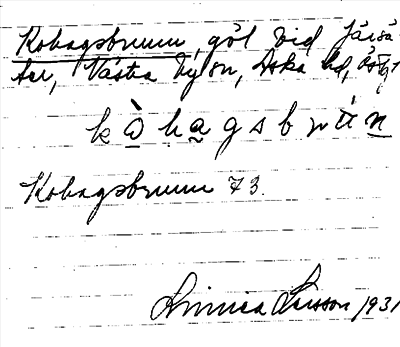 Kohagsbrunn, göl vid Järsä-
ter, Västra Ny sn, Aska hd, Östg.
kòhagsbrùn
Kohagsbrunn 73.
Linnea Larsson 1931